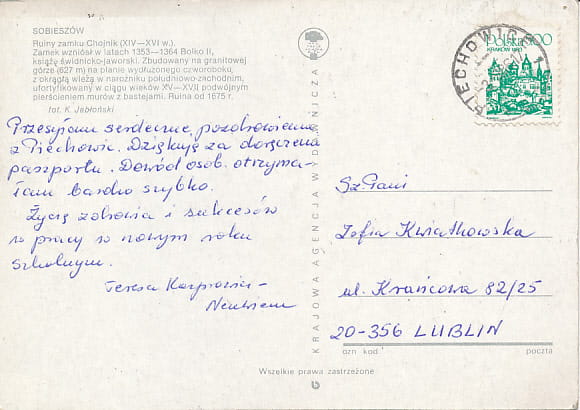 SOBIESZÓW
Ruiny zamku Chojnik (XIV—XVI w.).
Zamek wzniósł w latach 1353—1364 Bolko II,
książę świdnicko-jaworski. Zbudowany na granitowej
górze (627 m) na planie wydłużonego czworoboku,
z okrągłą wieżą w narożniku południowo-zachodnim,
ufortyfikowany w ciągu wieków XV—XVII podwójnym
pierścieniem murów z bastejami. Ruina od 1675 r.
fot. K. Jabłoński
Przesyłam serdeczne pozdrowienia
z Piechowic. Dziękuję za doręczenie
paszportu. Dowód osob. otrzyma-
łam bardzo szybko.
Życzę zdrowia i sukcesów
w pracy w nowym roku
szkolnym.
Teresa
KRAJOWA AGENCJA WYDAWNICZA
POLSKA
KRAKÓW
PIECHOWICE 1
Sz. Pani
Zofia Kwiatkowska
ul. Krańcowa 82/25
20-356 LUBLIN
ozn kod
poczta
Wszelkie prawa zastrzeżone